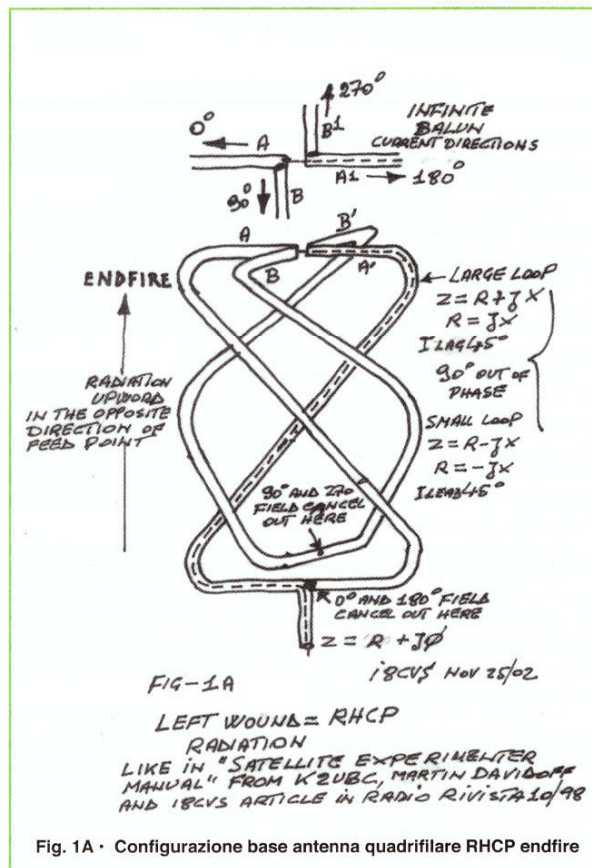 270°
INFINITE
BALUN
CURRENT DIRECTIONS
0°
A
B1
A1
180°
90°
B
A
B'
B
A'
ENDFIRE
LARGE LOOP
Z = R + JX
R = JX
I LAG 45°
90° OUT OF
PHASE
RADIATION
UPWORD
IN THE OPPOSITE
DIRECTION OF
FEED POINT
SMALL LOOP
Z = R - JX
R = -JX
I LEAD 45°
90° AND 270°
FIELD CANCEL
OUT HERE
0° AND 180° FIELD
CANCEL OUT HERE
Z = R + JØ
i8CVS NOV 25/02
FIG-1A
LEFT WOUND = RHCP
RADIATION
LIKE IN "SATELLITE EXPERIMENTER
MANUAL" FROM K2UBC, MARTIN DAVIDOFF
AND I8CVS ARTICLE IN RADIO RIVISTA 10/98
Fig. 1A · Configurazione base antenna quadrifilare RHCP endfire